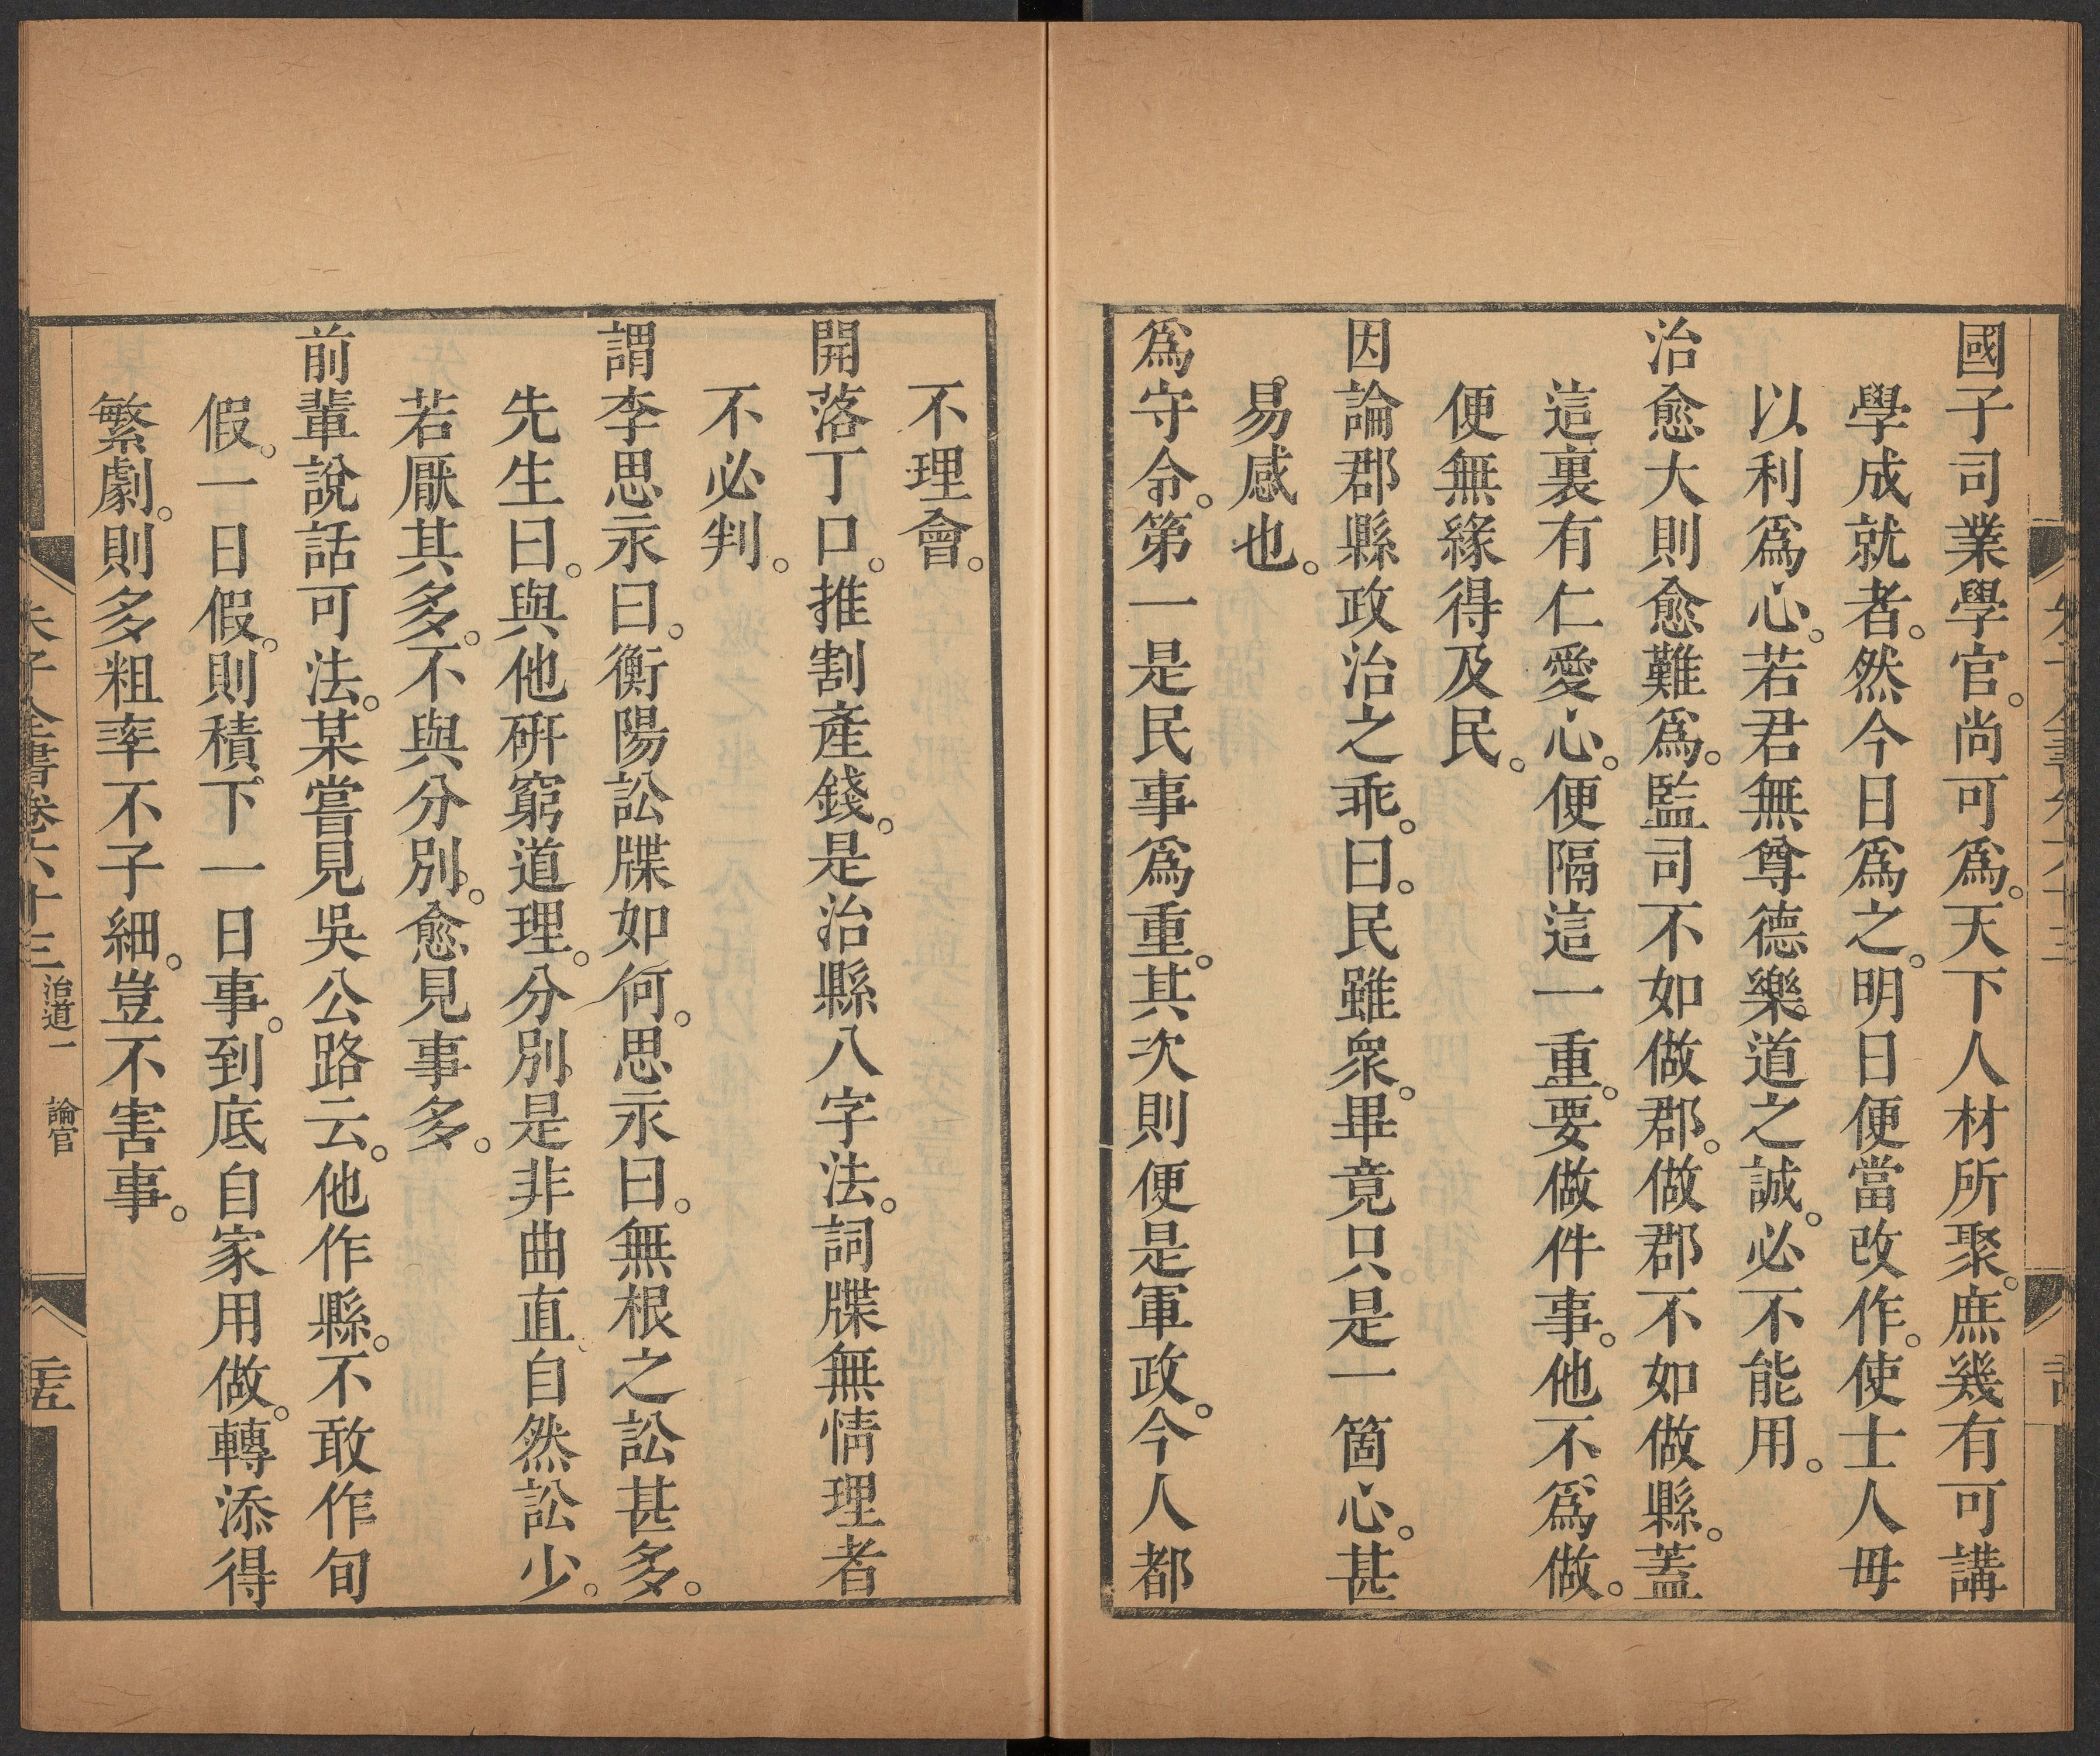 國子司業學官。尚可爲。天下人材所聚。庶幾有可講
學成就者。然今日爲之。明日便當改作。使士人毋
以利爲心。若君無尊德樂道之誠。必不能用。
治愈大則愈難爲。監司不如做郡。做郡不如做縣。蓋
這裏有仁愛心。便隔這一重。要做件事。他不爲做。
便無緣得及民。
因論郡縣政治之乖。曰。民雖衆。畢竟只是一箇心。甚
易感也。
爲守令。第一是民事爲重。其次則便是軍政。今人都
不理會。
開落丁口。推割產錢。是治縣八字法。詞牒無情理者
不必判。
謂李思永曰。衡陽訟牒如何。思永曰。無根之訟甚多。
先生曰。與他研窮道理。分別是非曲直。自然訟少。
若厭其多。不與分別。愈見事多。
前輩說話可法。某嘗見吳公路云。他作縣。不敢作旬
假。一日假。則積下一日事。到底自家用做。轉添得
繁劇。則多粗率不子細。豈不害事。
朱子全書卷六十三 治道一 論官